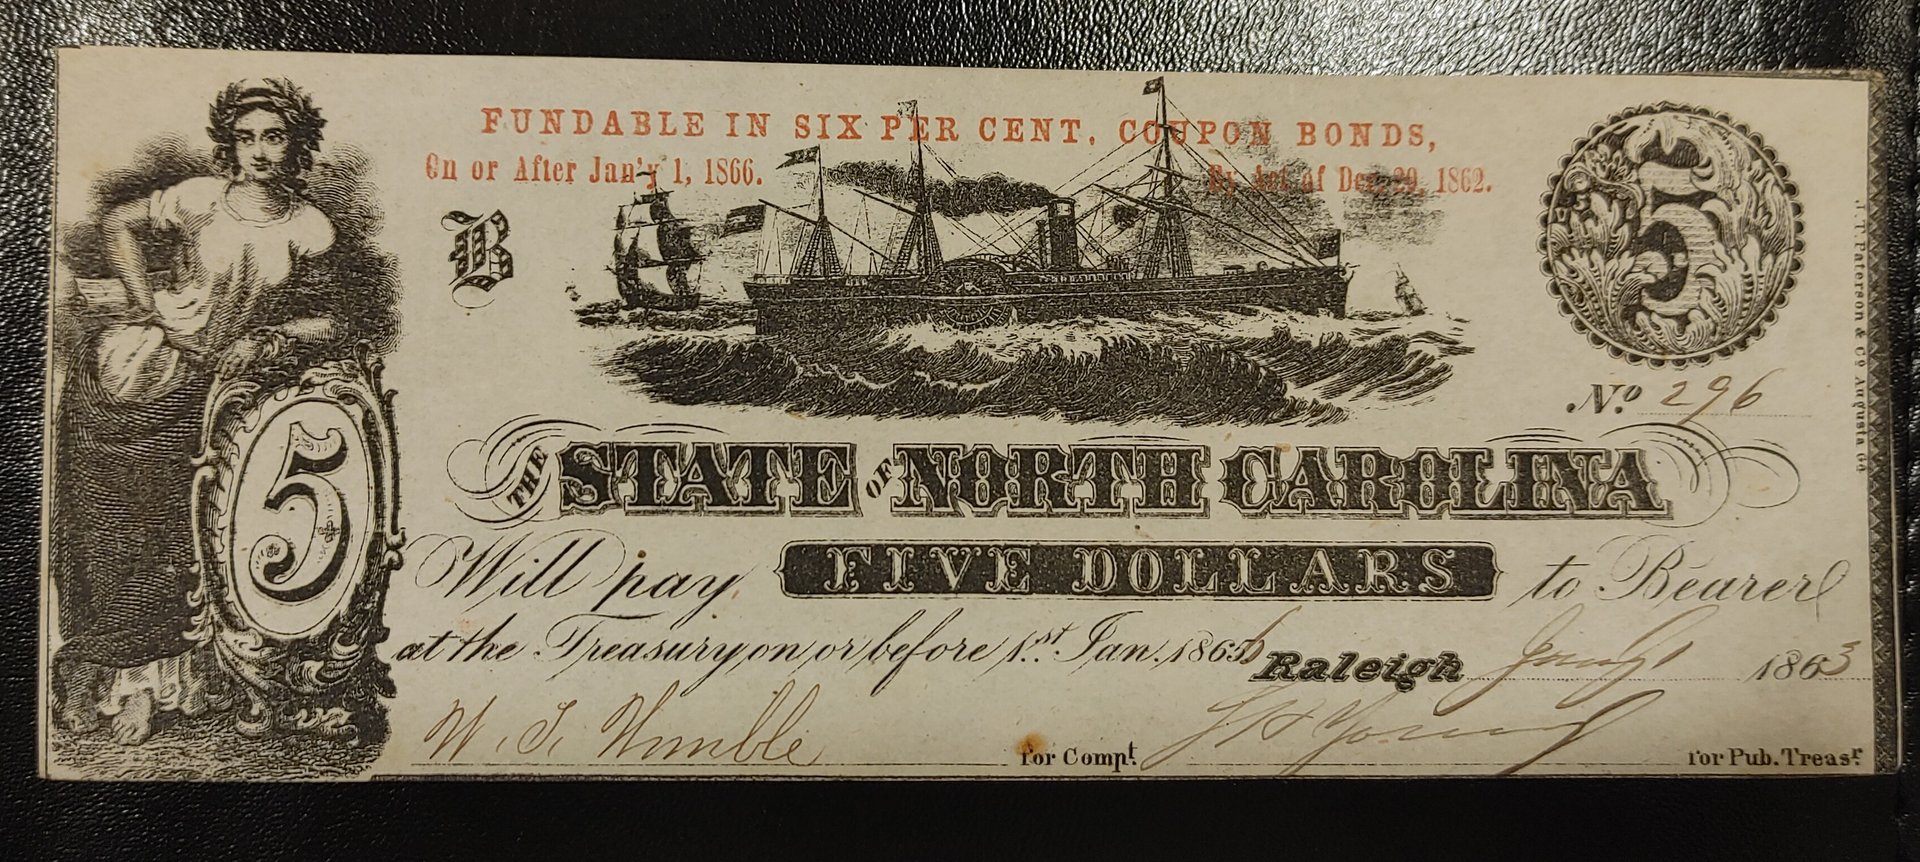 FUNDABLE IN SIX PER CENT, COUPON BONDS,
On or After Jan'y 1, 1866. By Act of Dec. 29, 1862.
B
5
No. 296
THE STATE OF NORTH CAROLINA
5
Will pay FIVE DOLLARS to Bearer
at the Treasury on or before 1st. Jan. 1866 Raleigh 1863
W. J. for Compt.
Young for Pub. Treasr.
J. T. Paterson & Co Augusta Ga